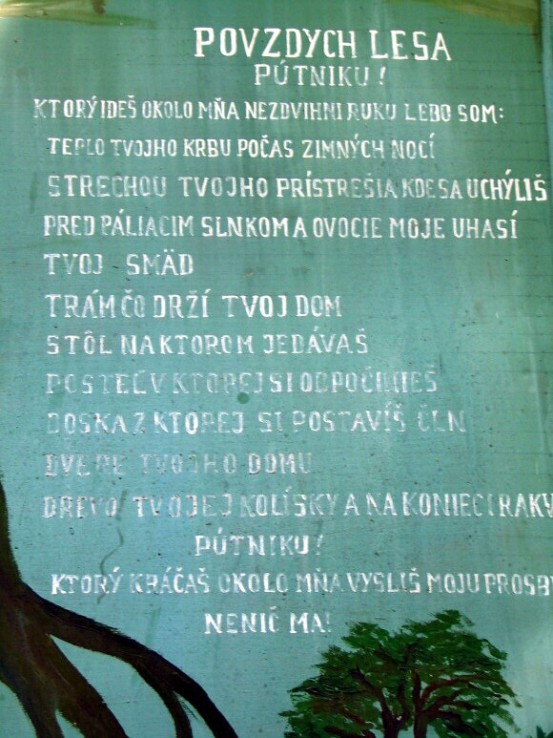 POVZDYCH LESA
PÚTNIKU!
KTORÝ IDEŠ OKOLO MŇA NEZDVIHNI RUKU LEBO SOM:
TEPLO TVOJHO KRBU POČAS ZIMNÝCH NOCÍ
STRECHOU TVOJHO PRÍSTREŠIA KDE SA UCHÝLIŠ
PRED PÁLIACIM SLNKOM A OVOCIE MOJE UHASÍ
TVOJ SMÄD
TRÁM ČO DRŽÍ TVOJ DOM
STÔL NA KTOROM JEDÁVAŠ
POSTEĽ V KTOREJ SI ODPOČINIEŠ
DOSKA Z KTOREJ SI POSTAVÍŠ ČLN
DVERE TVOJHO DOMU
DREVO TVOJEJ KOLÍSKY A NA KONIECI RAKV
PÚTNIKU!
KTORÝ KRÁČAŠ OKOLO MŇA VYSLIŠ MOJU PROSBY
NENIČ MA!